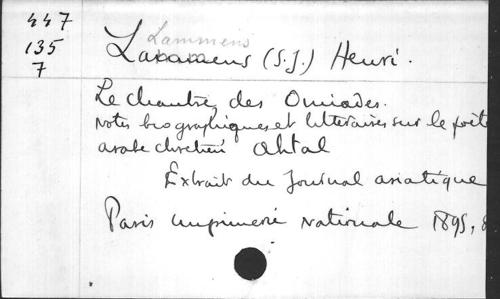 447
135
7
Lammens
Lammens (S.J.) Henri.
Le chantre des Omiades.
Notes biographiques et littéraires sur le poète
arabe chrétien Ahtal
Extrait du Journal asiatique
Paris Imprimerie Nationale 1895, 8